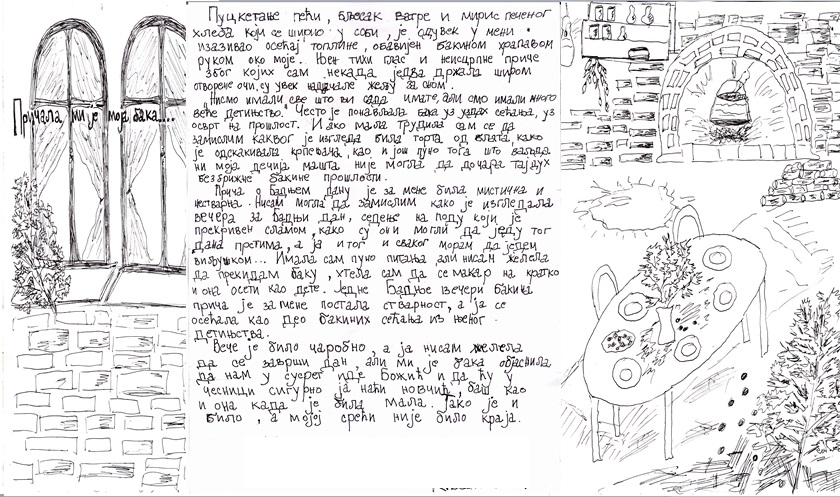 Причала ми је моја бака...
Пуцкетање пећи, бљесак ватре и мирис печеног
хлеба који се ширио у соби, је одувек у мени
изазивао осећај топлине, обавијен бакином храпавом
руком око моје. Њен тихи глас и неисцрпне приче
због којих сам некада једва држала широм
отворене очи, су увек надјачале жељу за сном.
"Нисмо имали све што ви сада имате, али смо имали много
веће детињство." Често је понављала бака уз уздах сећања, уз
осврт на прошлост. И ако мала трудила сам се да
замислим каквог је изгледа била торта од блата, како
је одскакивала крпењача, као и још пуно тога што ваљда
ни моја дечија машта није могла да дочара тај дух
безбрижне бакине прошлости.
Прича о бадњем дану је за мене била мистична и
нестварна. Нисам могла да замислим како је изгледала
вечера за бадњи дан, седење на поду који је
прекривен сламом, како су они могли да једу тог
дана прстима, а ја и тог и сваког морам да једем
виљушком... Имала сам пуно питања али нисам желела
да прекидам баку, хтела сам да се макар на кратко
и она осети као дете. Једне Бадње вечери бакина
прича је за мене постала стварност, а ја се
осећала као део бакиних сећања из њеног
детињства.
Вече је било чаробно, а ја нисам желела
да се заврши дан, али ми је бака објаснила
да нам у сусрет иде Божић и да ћу у
чесници сигурно ја наћи новчић, баш као
и она када је била мала. Тако је и
било, а мојој срећи није било краја.